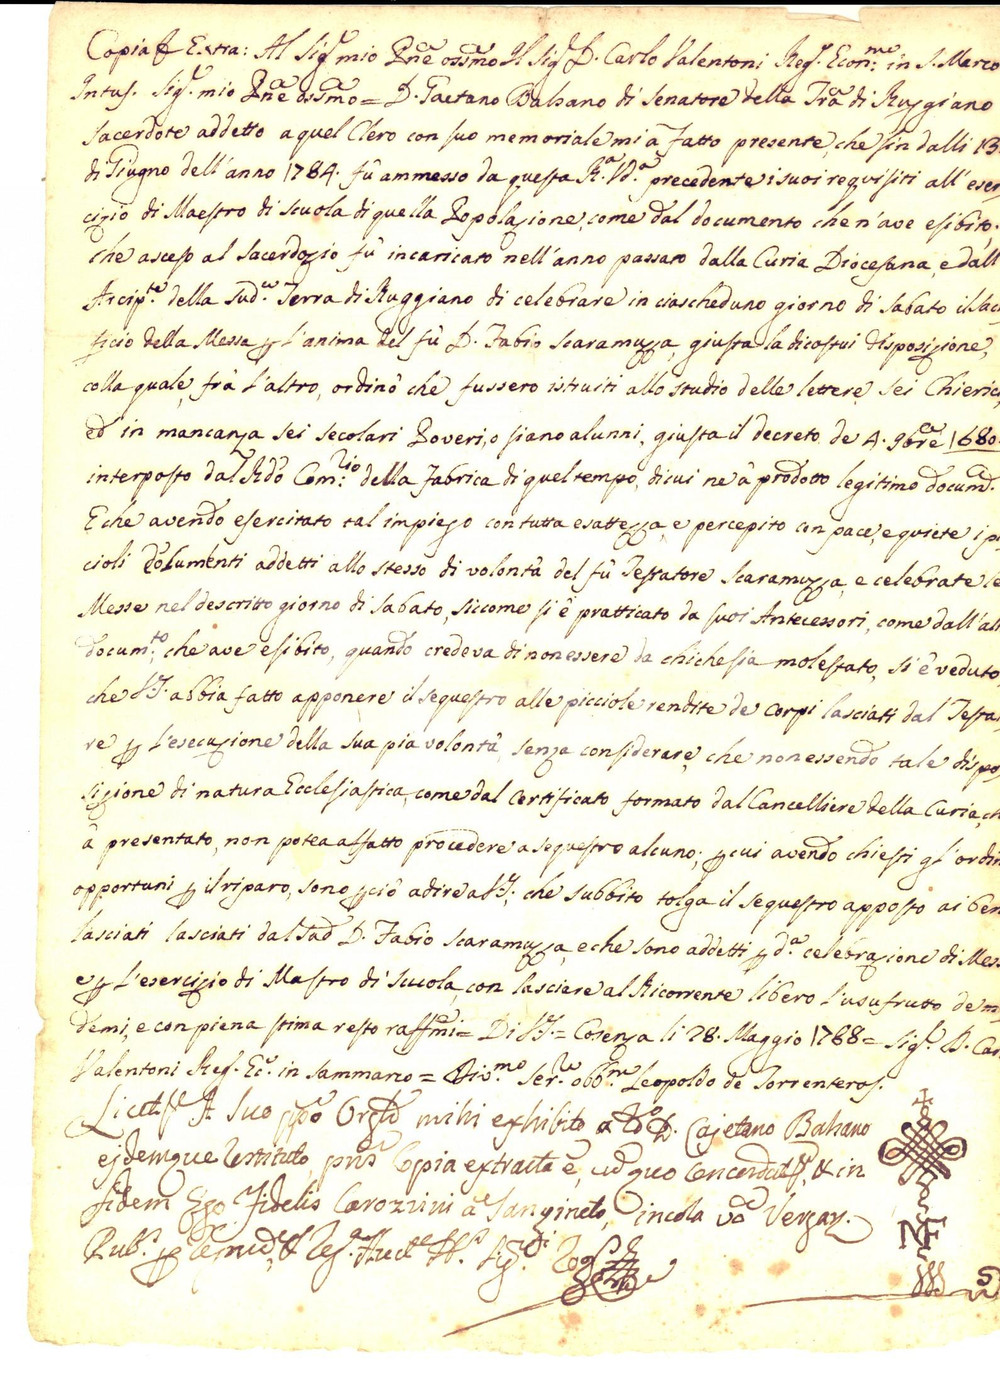 Copia & Extra: Al Sig.r mio Pne ossmo Il Sig.r D. Carlo Valentoni Reg.o Econ.mo in S. Marco
Intus. Sig.r mio Pne ossmo = D. Gaetano Balsano di Senatore della Tra di Ruggiano
Sacerdote addetto a quel Clero con suo memoriale mi à fatto presente, che sin dalli 13
di Giugno dell'anno 1784. fù ammesso da questa R.a Ud.a precedente i suoi requisiti all'eser
cizio di Maestro di Scuola di quella Popolazione, come dal documento che n'ave esibito.
che asceso al Sacerdozio fù incaricato nell'anno passato dalla Curia Diocesana, e dall'
Arcip.te della Sud.a Terra di Ruggiano di celebrare in ciascheduno giorno di Sabato il Sac
ficio della Messa p l'anima del fù D. Fabio Scaramuzza, giusta la dicostui disposizione,
colla quale, frà l'altro, ordinò che fussero istruiti allo studio delle lettere sei Chierici,
ed in mancanza sei secolari Poveri, o siano alunni, giusta il decreto de 4. 9bre 1680.
interposto dal Rdo Com.rio della Fabrica di quel tempo, di cui ne à prodotto legitimo docum.
E che avendo esercitato tal impiego con tutta esattezza, e percepito con pace, e quiete i pic
cioli Dolumenti addetti allo stesso di volontà del fù Testatore Scaramuzza, e celebrate le
Messe nel descritto giorno di Sabato, siccome si è pratticato da suoi Antecessori, come dall'al
docum.to, che ave esibito, quando credeva di non essere da chichesia molestato, si è veduto,
che V.S. abbia fatto apponere il sequestro alle picciole rendite de corpi lasciati dal Testa
re p l'esecuzione della sua pia volontà, senza considerare, che non essendo tale dispo
sizione di natura Ecclesiastica, come dal certificato formato dal Cancelliere della Curia, ch
à presentato, non potea affatto procedere a sequestro alcuno; p cui avendo chiesti gl'ordin
opportuni p il riparo, sono p ciò a dire a V.S. che subbito tolga il sequestro apposto ai ben
lasciati lasciati dal Sud D. Fabio Scaramuzza, e che sono addetti p d.a celebrazione di Mess
e p l'esercizio di Mastro di Scuola, con lasciare al Ricorrente libero l'usufrutto de m
demi, e con piena stima resto raffmi = Di V.S. = Cosenza li 28. Maggio 1788 = Sig.r D. Car
Valentoni Reg. Ec. in Sammarco = Div.mo Ser.e obb.mo Leopoldo de Torrenteros.
Licet A suo Orgli mihi exhibito a D. Cajetano Balsano
ejdemque restituto, pns Copia extracta e, cum quo concordat, & in
fidem Ego Fidelis Carozzini a Sangineto, incola Verzar.